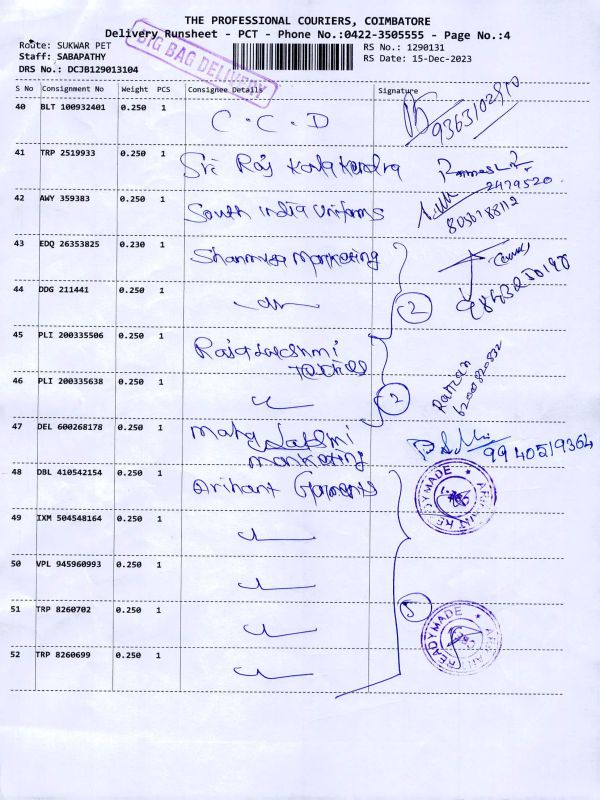 THE PROFESSIONAL COURIERS, COIMBATORE
Delivery Runsheet - PCT - Phone No.:0422-3505555 - Page No.:4
BIG BAG DELIVERY
Route: SUKWAR PET RS No.: 1290131
Staff: SABAPATHY RS Date: 15-Dec-2023
DRS No.: DCJB129013104
S No Consignment No Weight PCS Consignee Details Signature
40 BLT 100932401 0.250 1 C.C.D
41 TRP 2519933 0.250 1 Sri Raj
2479520
42 AWY 359383 0.250 1 South India Uniforms
43 EDQ 26353825 0.230 1 Marketing
44 DDG 211441 0.250 1 2
45 PLI 200335506 0.250 1 Rajalakshmi
46 PLI 200335638 0.250 1 2
47 DEL 600268178 0.250 1 Maha 9940519364
Marketing
48 DBL 410542154 0.250 1 Arihant Garments
READYMADE
49 IXM 504548164 0.250 1
50 VPL 945960993 0.250 1
51 TRP 8260702 0.250 1 5
READYMADE
52 TRP 8260699 0.250 1